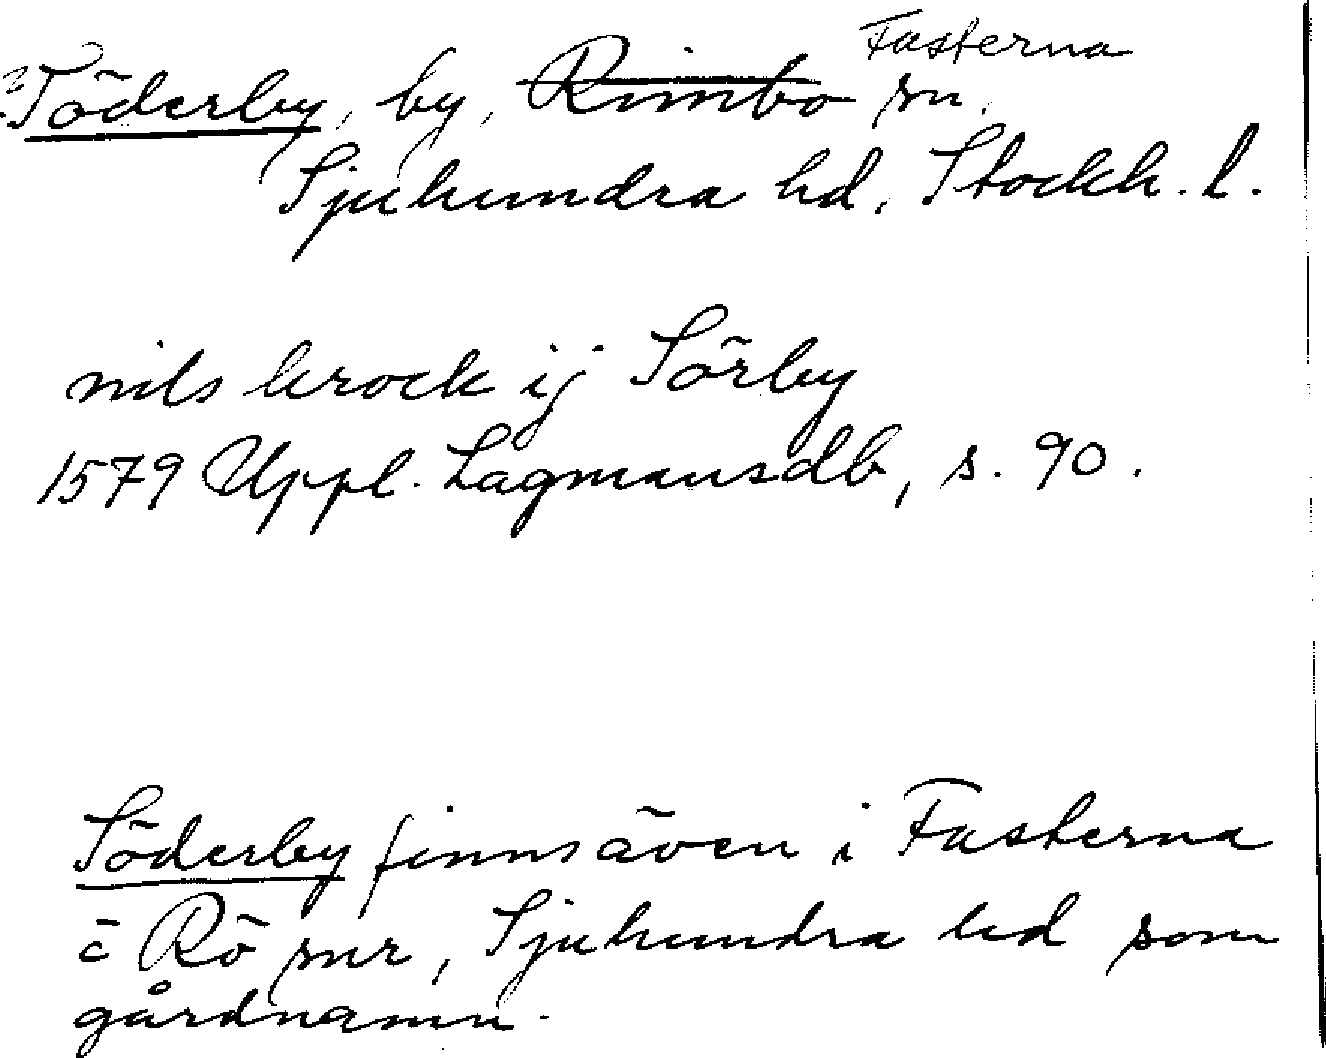 ? Söderby, by, Rimbo Fasterna sn,
Sjuhundra hd, Stockh. l.
nils krock ij Sörby
1579 Uppl. Lagmansdb, s. 90.
Söderby finns även i Fasterna
o Rö snr, Sjuhundra hd som
gårdnamn.